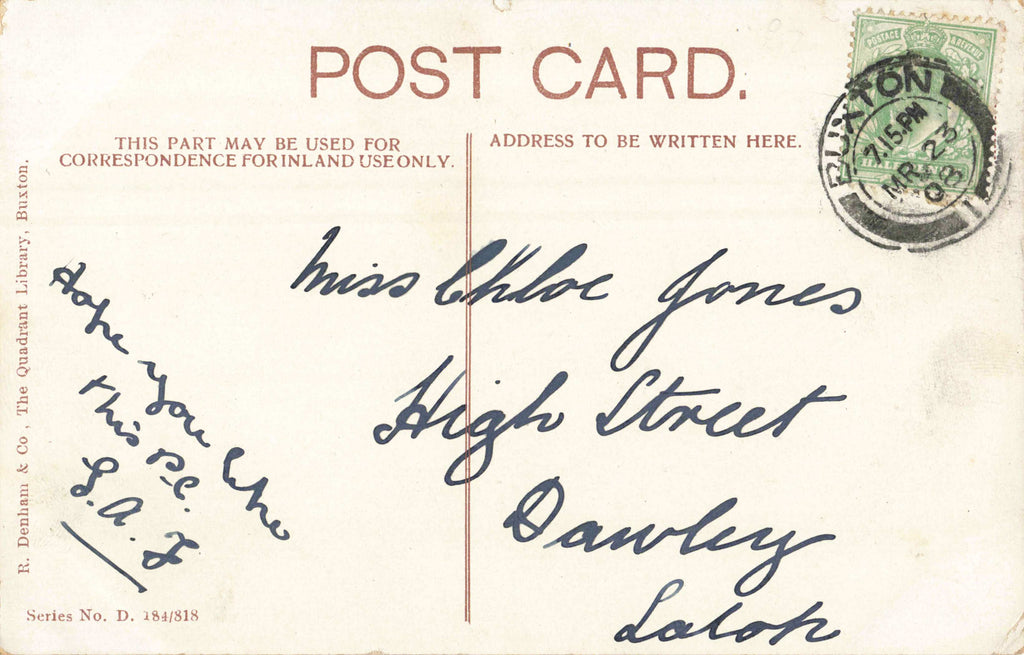 POST CARD.
THIS PART MAY BE USED FOR
CORRESPONDENCE FOR INLAND USE ONLY.
ADDRESS TO BE WRITTEN HERE.
POSTAGE & REVENUE
BUXTON
7.15.PM
MR 23
08
R. Denham & Co, The Quadrant Library, Buxton.
Hope you like
this P.C.
Miss Chloe Jones
High Street
Dawley
Salop
Series No. D. 184/818